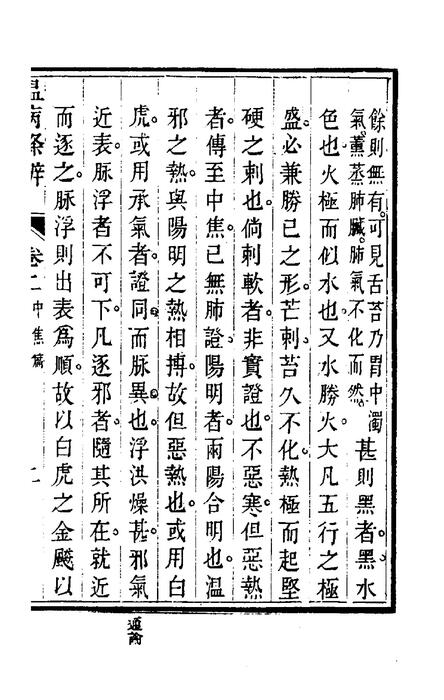 餘則無有可見舌苔乃胃中濁
氣薰蒸肺臟肺氣不化而然
甚則黑者黑水
色也火極而似水也又水勝火大凡五行之極
盛必兼勝己之形芒刺苔久不化熱極而起堅
硬之刺也倘刺軟者非實證也不惡寒但惡熱
者傳至中焦已無肺證陽明者兩陽合明也温
邪之熱與陽明之熱相搏故但惡熱也或用白
虎或用承氣者證同而脈異也浮洪燥甚邪氣
近表脈浮者不可下凡逐邪者隨其所在就近
而逐之脈浮則出表爲順故以白虎之金飇以
温病条辨
卷二中焦篇
二
通論